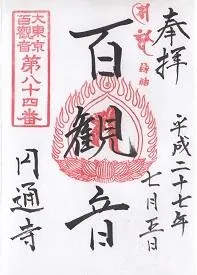 奉拝
平成二十七年
七月五日
百觀音
大東京
百觀音
第八十四番
円通寺